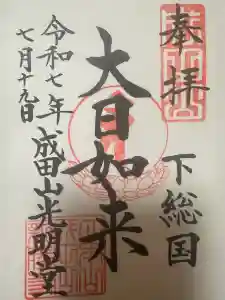 奉拝
下総国
大日如来
成田山光明堂
令和七年
七月十九日